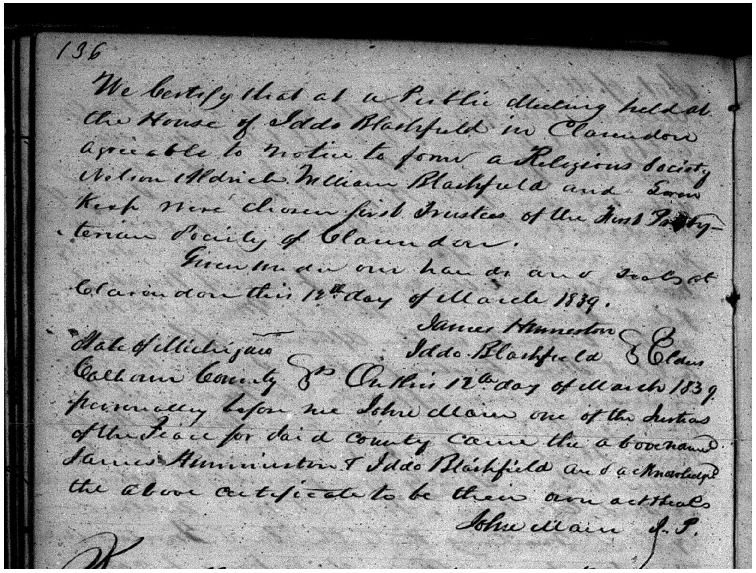 136
We Certify that at a Public Meeting held at
the House of Iddo Blashfield in Clarendon
agreeable to notice to form a Religious Society
Nelson Aldrich William Blashfield and
Keep were chosen first Trustees of the First Presby-
terian Society of Clarendon.
Given under our hands and seals at
Clarendon this 12th day of March 1839.
James Humeston
Iddo Blashfield } Elders
State of Michigan
Calhoun County } ss On this 12th day of March 1839
personally before me John Main one of the Justices
of the Peace for said county came the above named
James Humeston & Iddo Blashfield and acknowledged
the above certificate to be their own act & seals
John Main J. P.